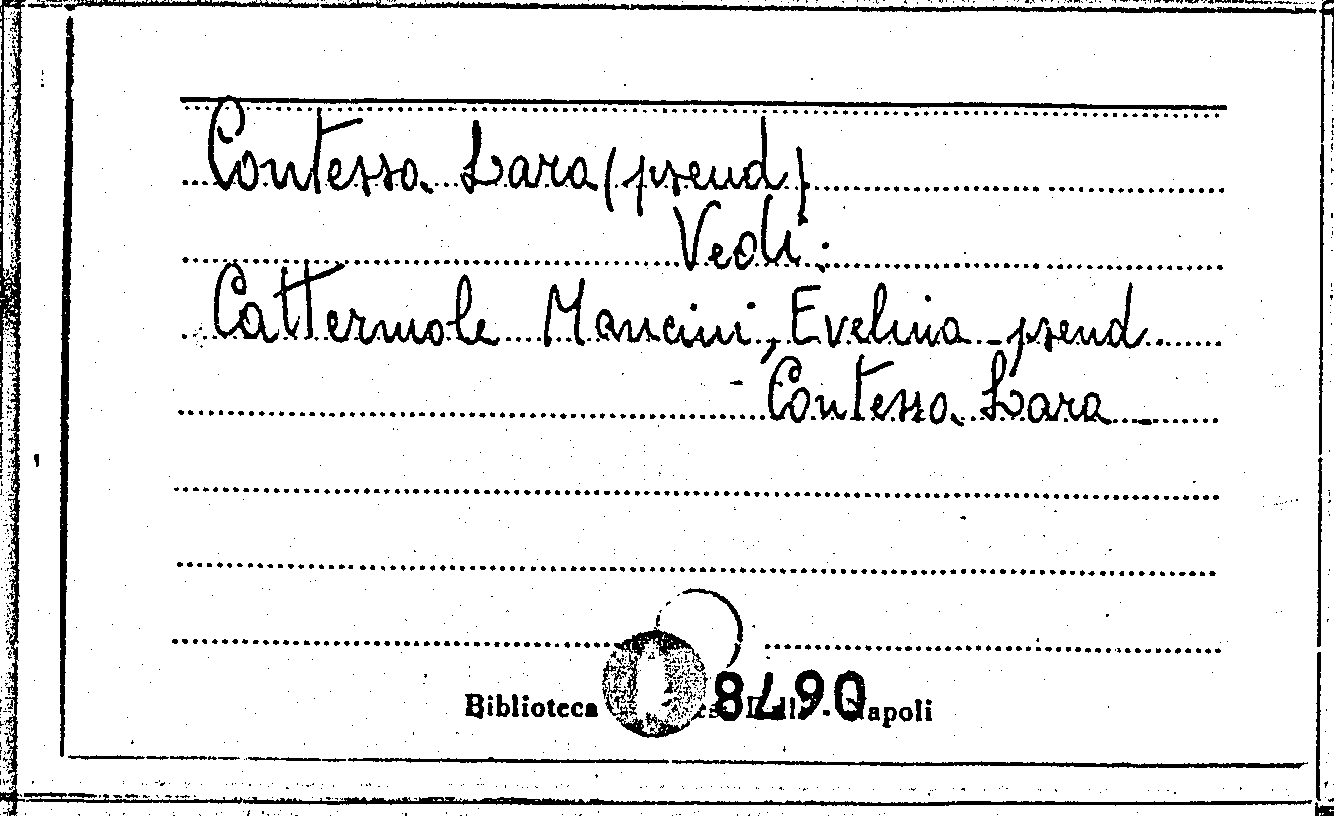 Contessa Lara (pseud)
Vedi:
Cattermole Mancini, Evelina - pseud.
- Contessa Lara -
Biblioteca - Napoli